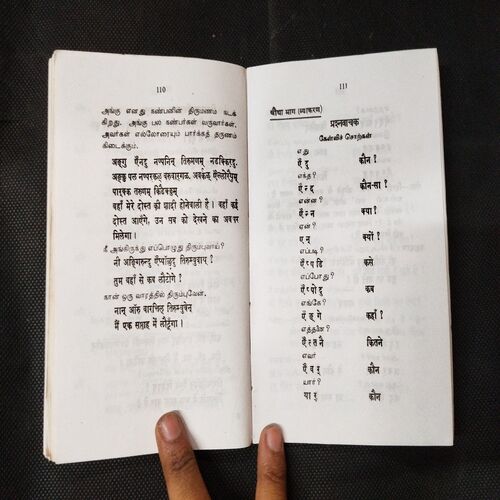 110
அங்கு எனது நண்பனின் திருமணம் நடக்
கிறது. அங்கு பல நண்பர்கள் வருவார்கள்.
அவர்கள் எல்லோரையும் பார்க்கத் தருணம்
கிடைக்கும்.
अङ्गु ऍनदु नण्पनिन् तिरुमणम् नडक्किरदु.
अङ्गु पल नण्परकळ् वरुवारगळ. अवरकळ् ऍल्लोरैयुम्
पारक्क तरुणम् किडैक्कुम्
वहाँ मेरे दोस्त की शादी होनेवाली है। वहाँ कई
दोस्त आएँगे, उन सब को देखने का अवसर
मिलेगा।
நீ அங்கிருந்து எப்பொழுது திரும்புவாய்?
नी अङ्गिरुन्दु ऍप्पॉळुदु तिरुम्बुवाय् ?
तुम वहाँ से कब लौटोगे ?
நான் ஒரு வாரத்தில் திரும்புவேன்.
नान् ऑरु वारत्तिल् तिरुम्बुवेन्
मैं एक सप्ताह में लौटूँगा।
111
चौथा भाग (व्याकरण)
प्रश्नवाचक
கேள்விச் சொற்கள்
எது
ऍदु कौन ?
எந்த?
ऍन्द कौन-सा ?
என்ன?
ऍन्न क्या ?
ஏன்?
एन् क्यों ?
எப்படி?
ऍप्पडि कैसे
எப்போது?
ऍप्पोदु कब
எங்கே?
ऍङ्गे कहाँ ?
எத்தனை?
ऍत्तनै कितने
எவர்
ऍवर् कौन
யார்?
यार् कौन